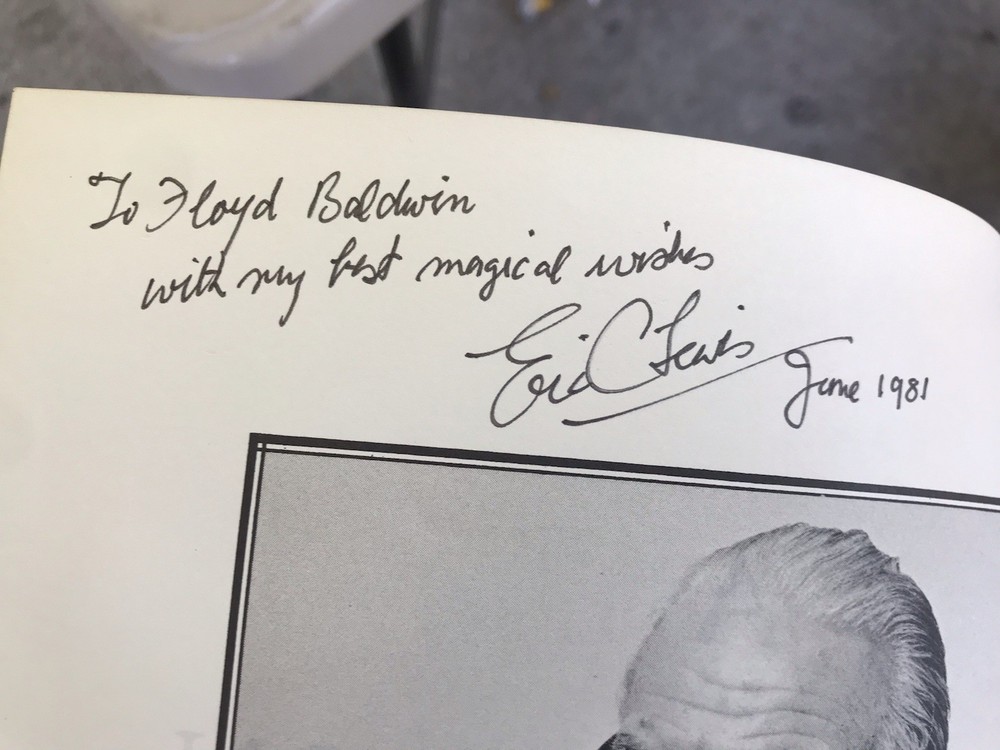 To Floyd Baldwin
with my best magical wishes
Eric C Lewis
June 1981